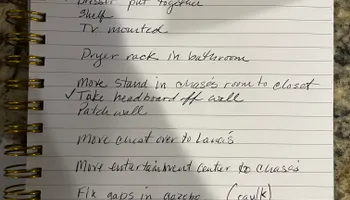 Dresser put together
Shelf
TV mounted
Dryer rack in bathroom
Move stand in chase's room to closet
✓ Take headboard off wall
Patch wall
Move chest over to Lana's
Move entertainment center to chase's
Fix gaps in gazebo (caulk)